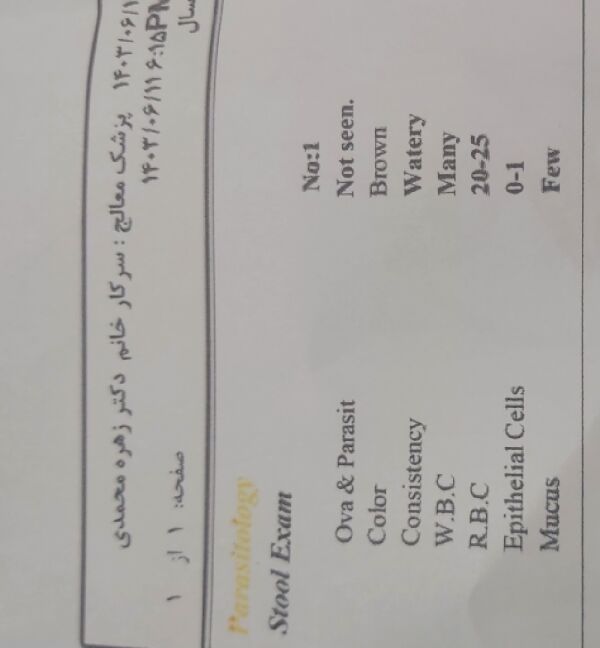 پزشک معالج : سرکار خانم دکتر زهره محمدی ۱۴۰۳/۰۶/۱
صفحه: ۱ از ۱ ۱۴۰۳/۰۶/۱۱ ۶:۱۵PM
سال
Parasitology
Stool Exam
No:1
Ova & Parasit Not seen.
Color Brown
Consistency Watery
W.B.C Many
R.B.C 20-25
Epithelial Cells 0-1
Mucus Few